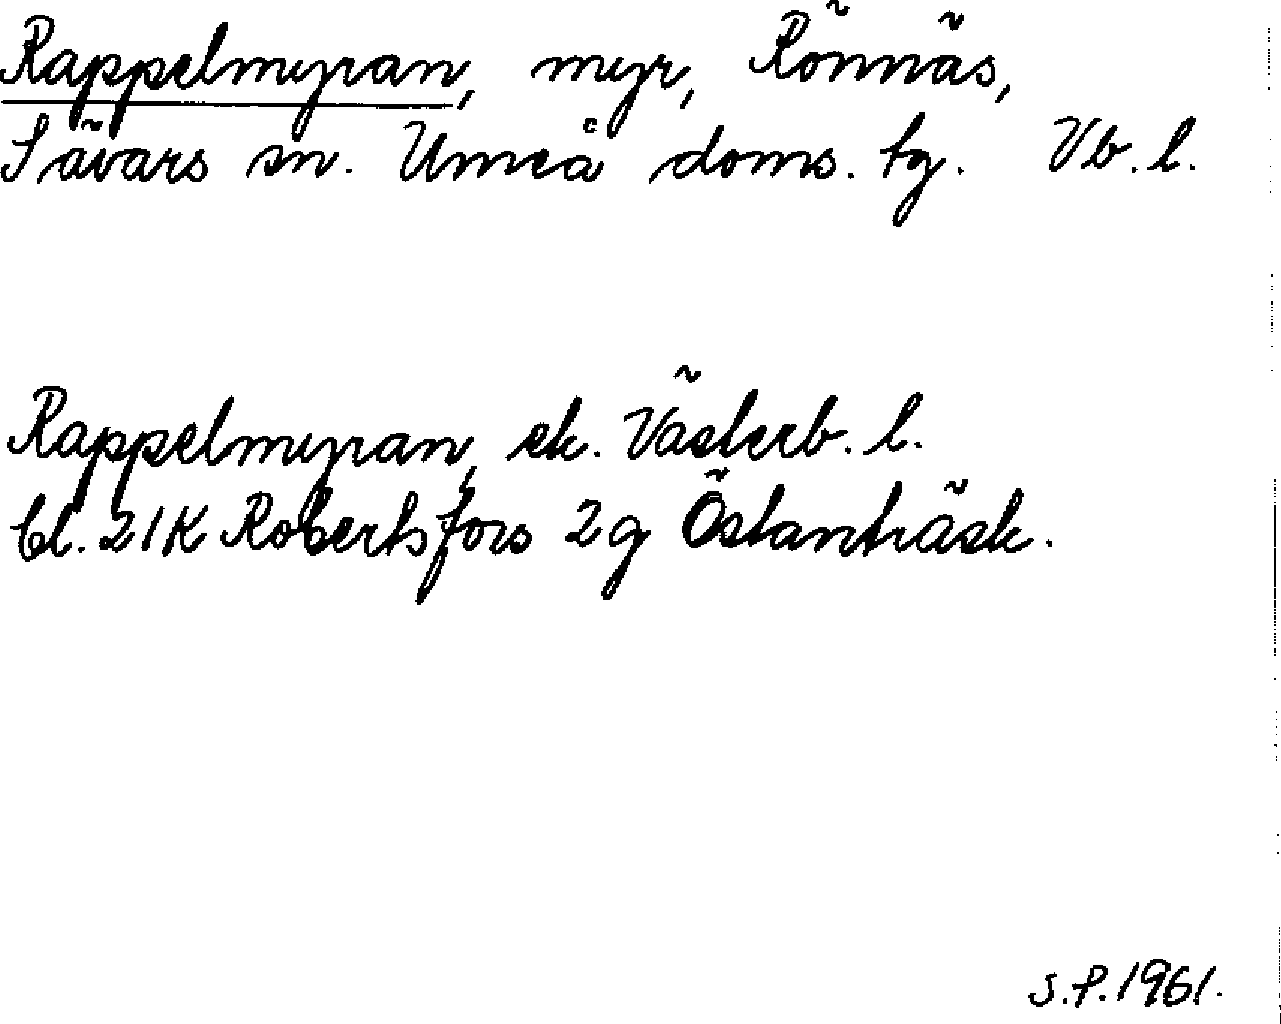 Rappelmyran, myr, Rönnäs,
Sävars sn. Umeå doms. tg. Vb. l.
Rappelmyran, ek. Västerb. l.
bl. 21K Robertsfors 2g Östanträsk.
S.P. 1961.